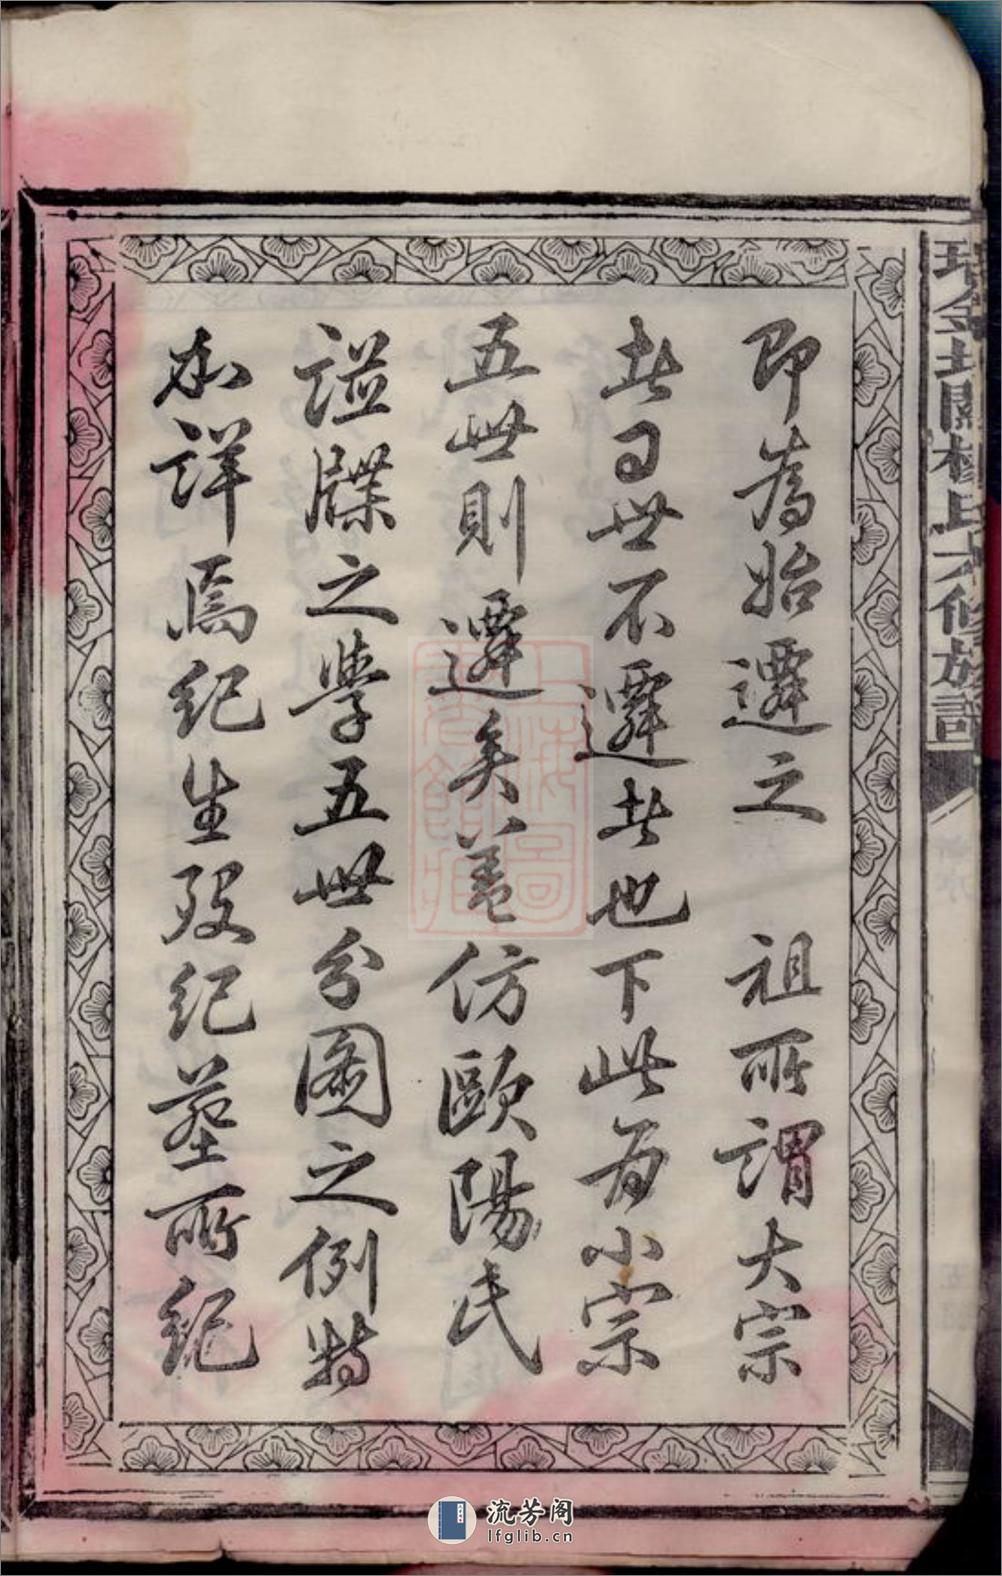 即為始遷之　祖所謂大宗
者百世不遷者也下此為小宗
五世則遷矣蓋仿歐陽氏
謚牒之學五世分圖之例特
加詳焉紀生歿紀墓所紀
金
關
氏六修族譜
流芳阁
lfglib.cn